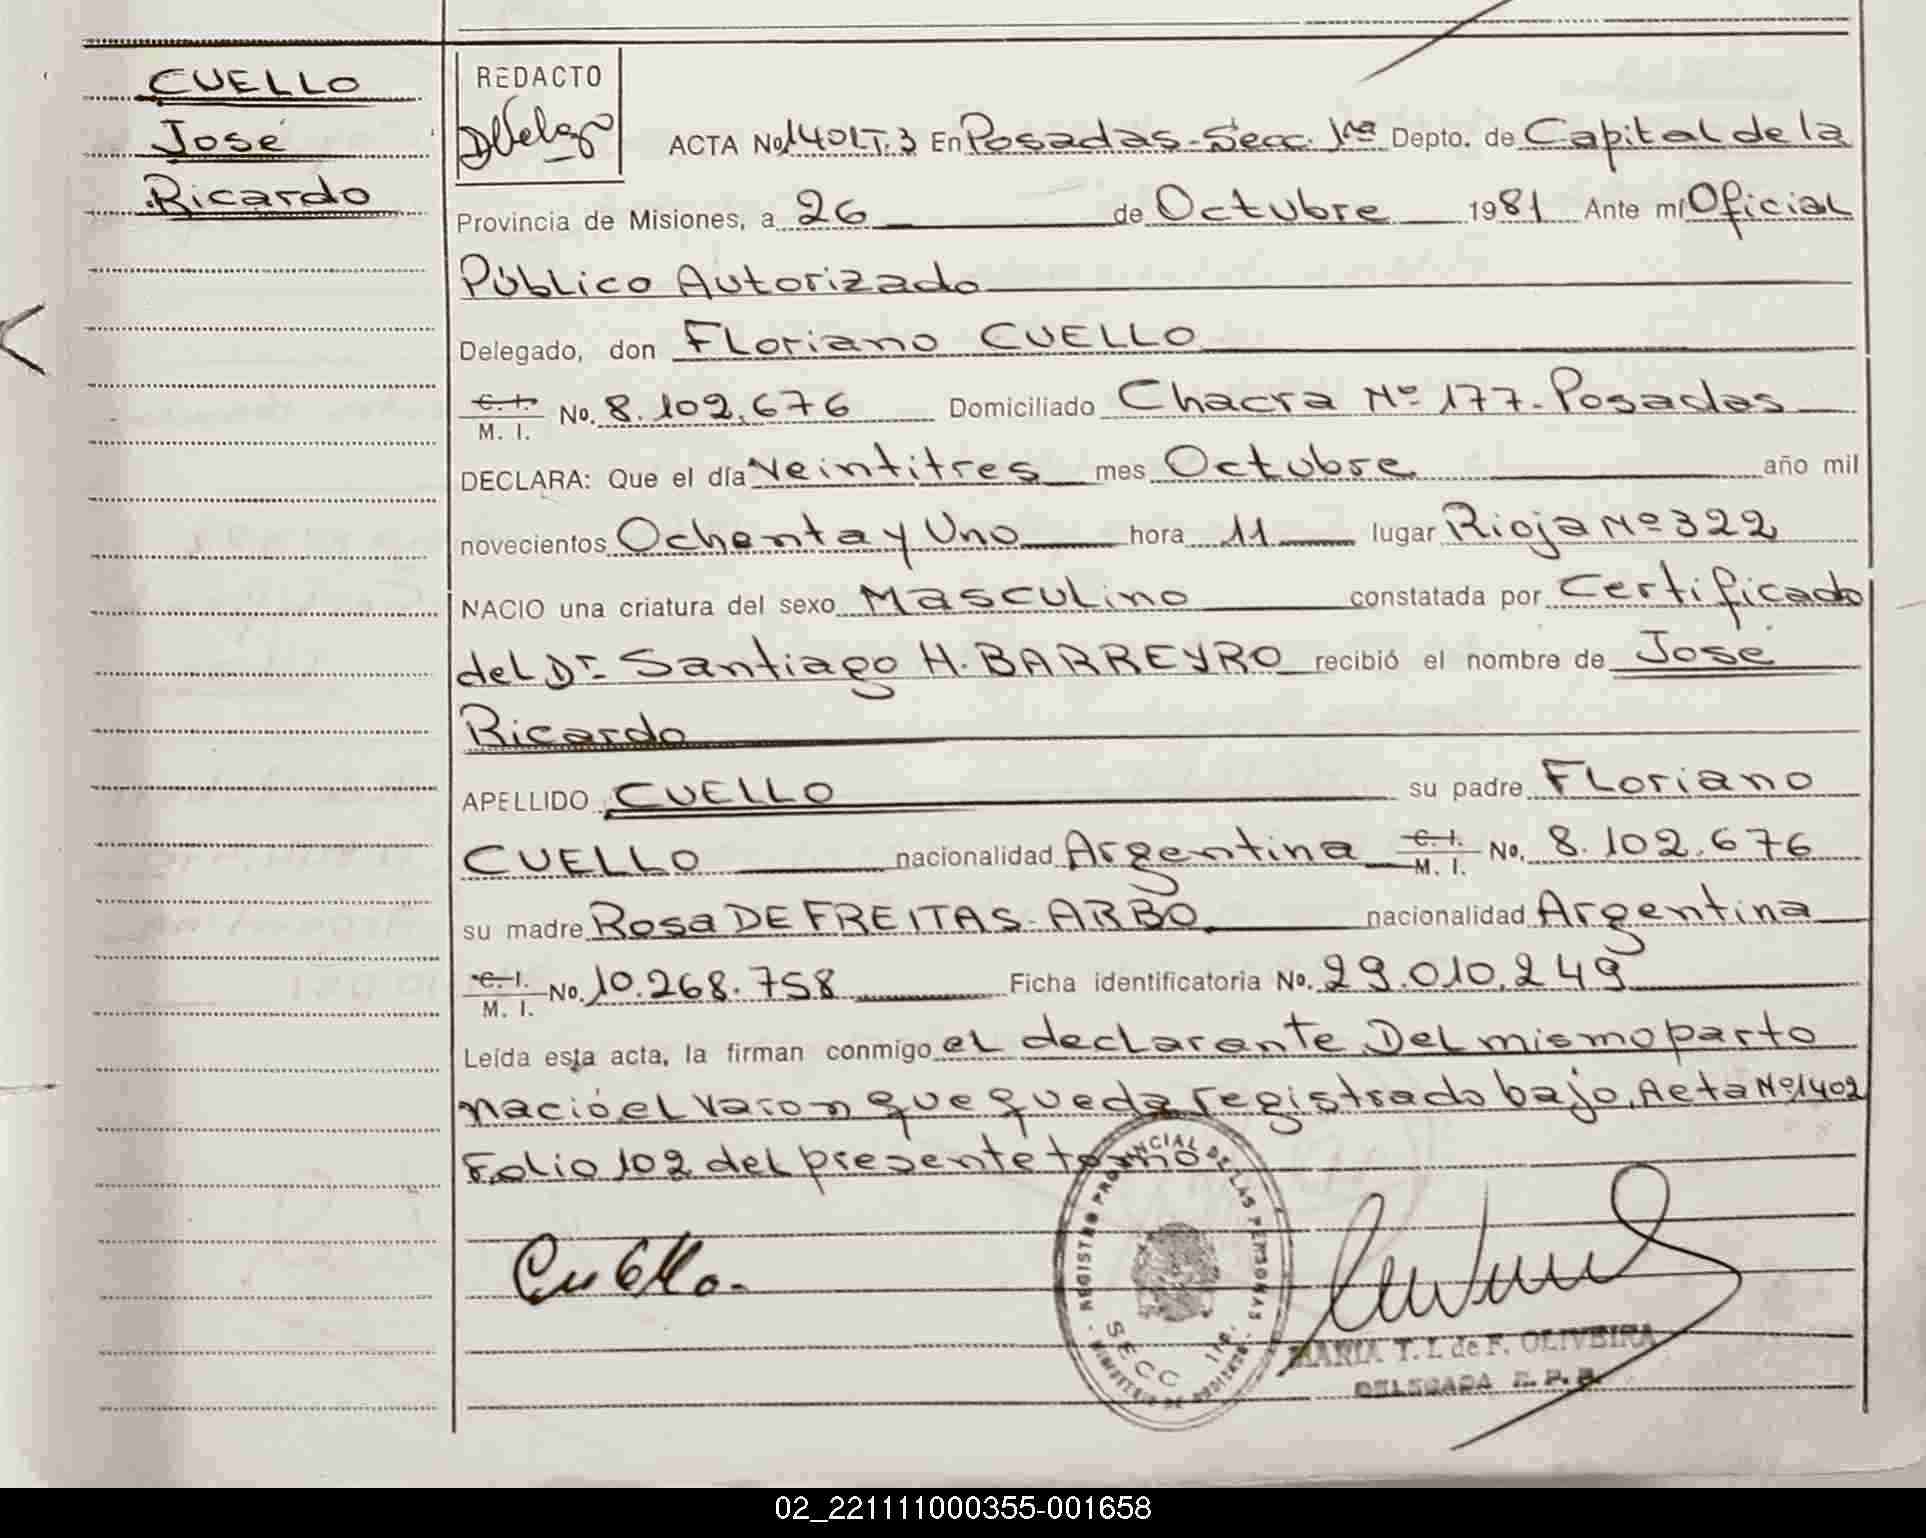 CUELLO
José
Ricardo
REDACTO
ACTA No. 1401 T. 3 En Posadas - Secc. 1ra Depto. de Capital de la
Provincia de Misiones, a 26 de Octubre 1981 Ante mí Oficial
Público Autorizado
Delegado, don Floriano CUELLO
C. I. M. I. No. 8.102.676 Domiciliado Chacra Nº 177 - Posadas
DECLARA: Que el día veintitres mes Octubre año mil
novecientos Ochenta y Uno hora 11 lugar Rioja Nº 322
NACIO una criatura del sexo Masculino constatada por Certificado
del Dr. Santiago H. BARREYRO recibió el nombre de José
Ricardo
APELLIDO CUELLO su padre Floriano
CUELLO nacionalidad Argentina C. I. M. I. No. 8.102.676
su madre Rosa DE FREITAS - ARBO. nacionalidad Argentina
C. I. M. I. No. 10.268.758 Ficha identificatoria No. 29.010.249
Leída esta acta, la firman conmigo el declarante. Del mismo parto
nació el varon que queda registrado bajo Acta Nº 1402
Folio 102 del presente tomo.
Cuello.-
REGISTRO PROVINCIAL DE LAS PERSONAS
SECC 1ra.
MARIA T. I. de F. OLIVEIRA
DELEGADA R. P. P.
02_221111000355-001658